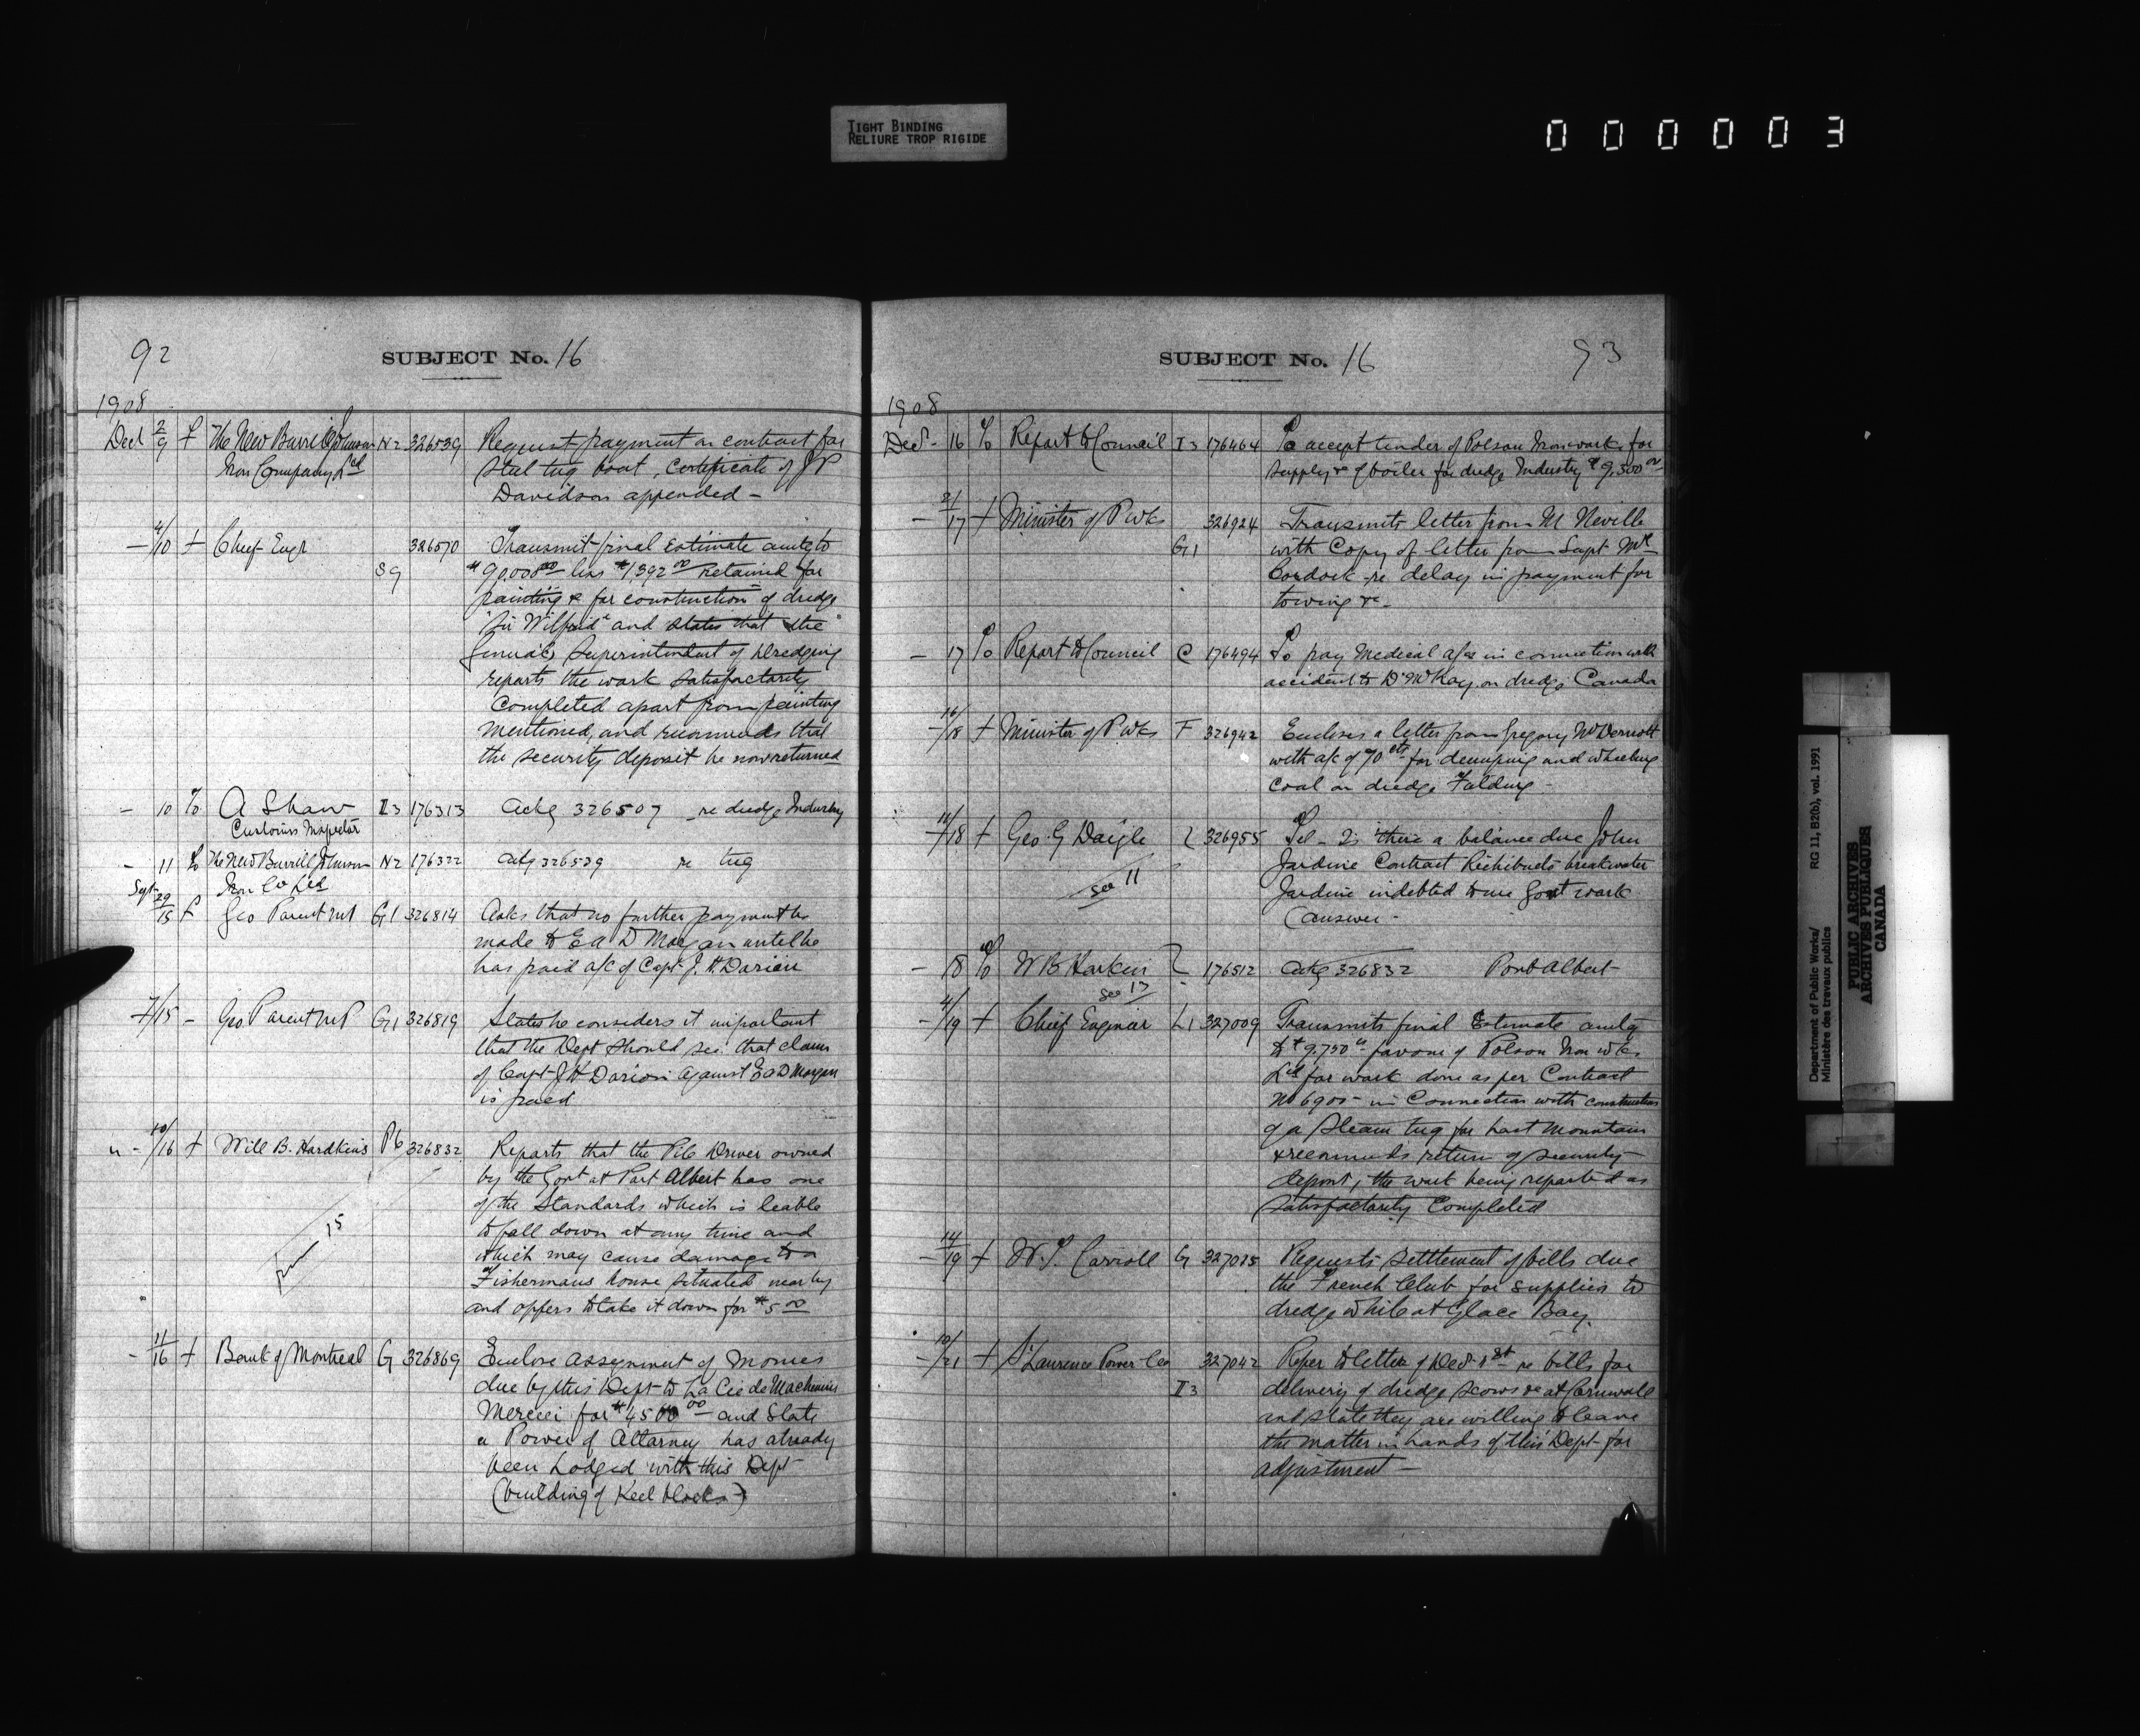 TIGHT BINDING
RELIURE TROP RIGIDE
000003
92
SUBJECT No. 16
1908
Decr 2/9 f The New Burrell Johnson N2 326539 Request payment on contract for
Iron Company Ltd steel tug boat, certificate of J P
Davidson appended -
- 4/10 f Chief Engr 326570 Transmit final estimate amtg to
39 $90,000 00 less $1,392 00 retained for
painting & for construction of dredge
"Sir Wilfrid" and states that the
General Superintendent of Dredging
reports the work satisfactorily
completed apart from painting
mentioned, and recommends that
the security deposit be now returned
- 10 To A Shaw I3 176313 Ackg 326507 re dredge Industry
Customs Inspector
- 11 To The New Burrill Johnson N2 176322 Ackg 326539 re tug
Iron Co Ltd
Sept 29/15 f Geo Parent MP G1 326814 Asks that no further payment be
made to E A D Morgan until he
has paid a/c of Capt J. H. Darion
- 7/15 - Geo Parent MP G1 326819 States he considers it important
that the Dept should see that claim
of Capt J H Darion against E A D Morgan
is paid
" - 10/16 f Will B. Hardkins P6 326832 Reports that the Pile Driver owned
by the Govt at Port Albert has one
of the Standards which is leable
to fall down at any time and
which may cause damage to a
Fishermans house situated nearby
and offers to take it down for $5 00
from 15
- 11/16 f Bank of Montreal G 326869 Enclose assignment of monies
due by this Dept to La Cie de Machineries
Mercier for $4500 00 - and State
a Power of Attorney has already
been Lodged with this Dept
(building of Keel blocks)
93
SUBJECT No. 16
1908
Decr - 16 To Report to Council I3 176464 To accept tender of Polson Ironworks for
supply &c of boiler for dredge Industry $9,500 00
- 2/17 f Minister of P Wks 326924 Transmits letter from M Neville
G1 with Copy of letter from Supt
re delay in payment for
towing &c -
- 17 To Report to Council C 176494 To pay Medical a/cs in connection with
accident to D McKay on dredge Canada
- 16/18 f Minister of P Wks F 326942 Encloses a letter from Gregory McDermott
with a/c of 70 cts for dumping and wheeling
coal on dredge Fielding -
- 18 f Geo. G Daigle 326955 Tel - Is there a balance due John
Jardine Contract Richibucto breakwater
see 11 Jardine indebted to me Govt work
(answer -
- 18 To W B Harkins 176512 Ackg 326832 Port Albert -
see 13
- 4/19 f Chief Engineer L1 327009 Transmits final Estimate amtg
to $9,750 00 favour of Polson Iron Wks
Ltd for work done as per Contract
No 6900 - in Connection with construction
of a Steam tug for Last Mountain
& recommends return of security
deposit, the work being reported as
satisfactorily Completed
- 14/19 f Carroll G Requests settlement of bills due
the French Club for supplies to
dredge while at Glace Bay.
- 10/21 f St Laurence Power Co 327042 Refer to letter of Decr 1st re bills for
I3 delivery of dredge scows &c at Cornwall
and state they are willing to leave
the matter in hands of this Dept for
adjustment -
Department of Public Works/
Ministère des travaux publics
RG 11, B2(b), vol. 1991
PUBLIC ARCHIVES
ARCHIVES PUBLIQUES
CANADA